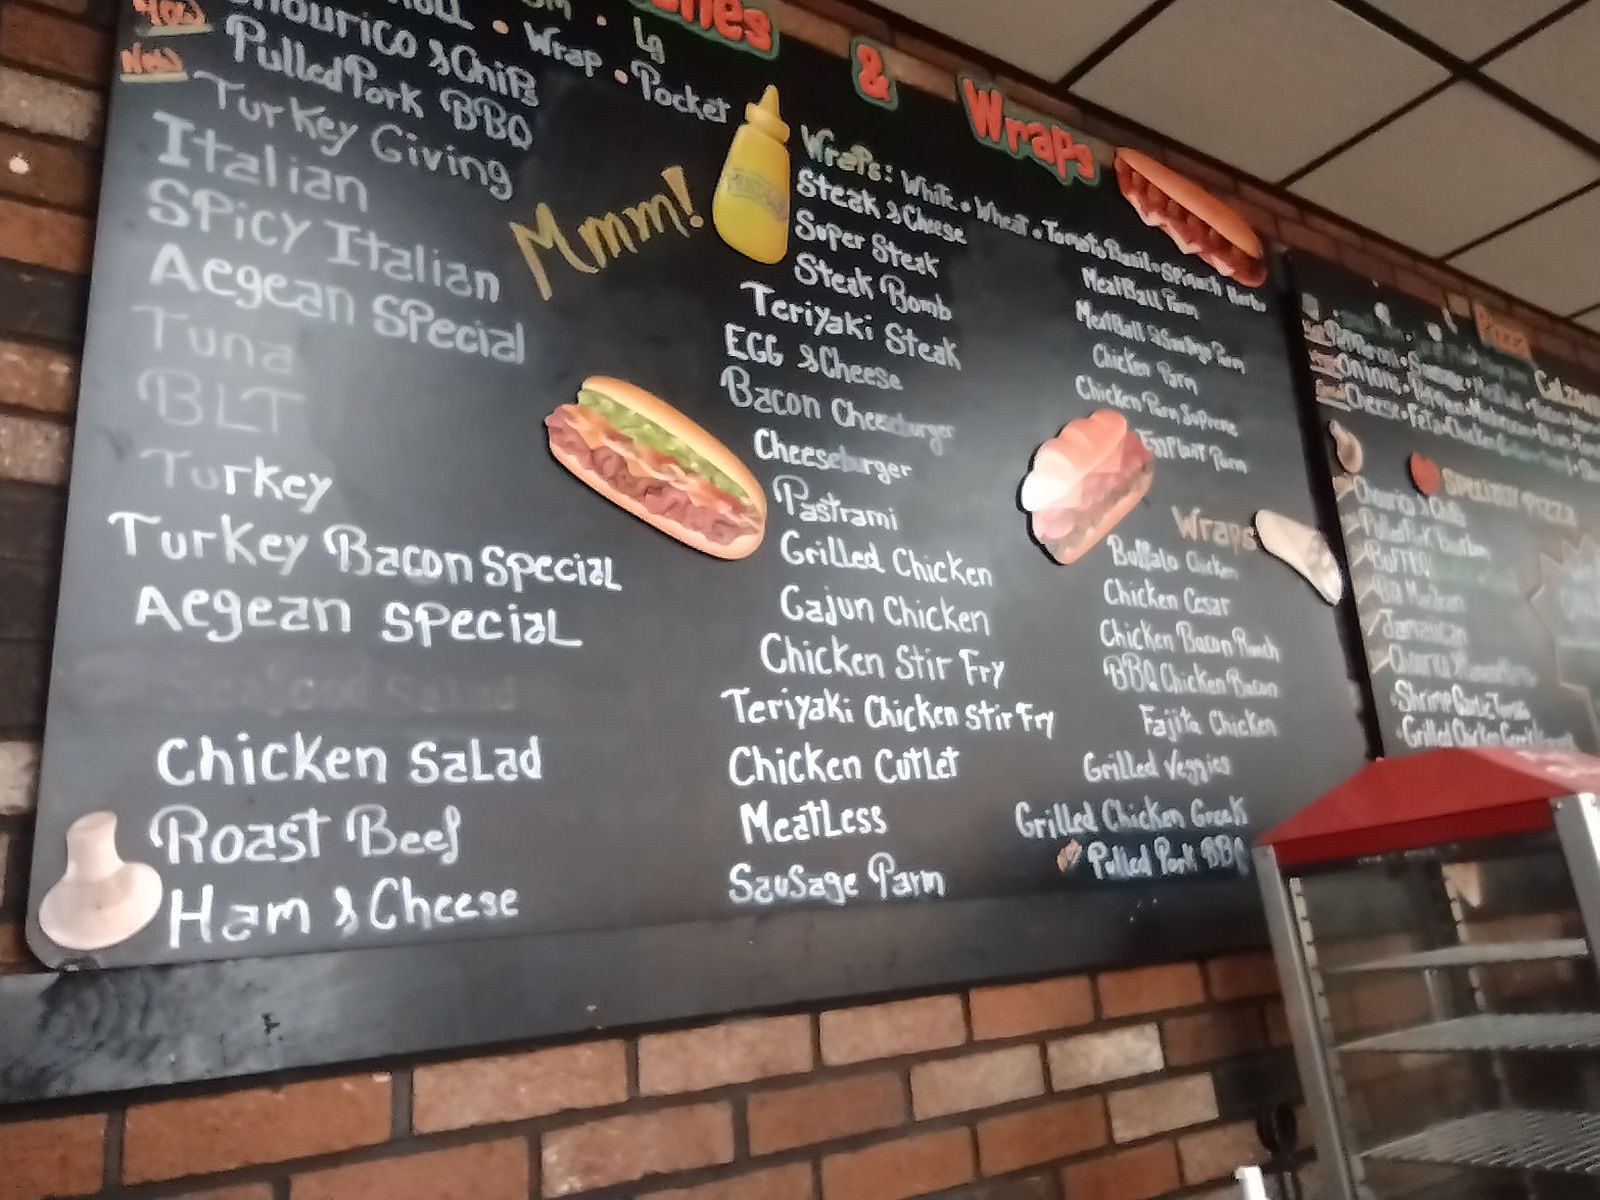 & Wraps
Sm • Lg
• Wrap • Pocket
New
& Chips
New
Pulled Pork BBQ
Turkey Giving
Italian
Spicy Italian
Aegean Special
Tuna
BLT
Turkey
Turkey Bacon Special
Aegean Special
Seafood Salad
Chicken Salad
Roast Beef
Ham & Cheese
Mmm!
Wraps: White • Wheat • Tomato Basil • Spinach Herb
Steak & Cheese
Super Steak
Steak Bomb
Teriyaki Steak
Egg & Cheese
Bacon Cheeseburger
Cheeseburger
Pastrami
Grilled Chicken
Cajun Chicken
Chicken Stir Fry
Teriyaki Chicken Stir Fry
Chicken Cutlet
Meatless
Sausage Parm
MeatBall Parm
MeatBall & Sausage Parm
Chicken Parm
Chicken Parm Supreme
EggPlant Parm
Wraps
Buffalo Chicken
Chicken Cesar
Chicken Bacon Ranch
BBQ Chicken Bacon
Fajita Chicken
Grilled Veggies
Grilled Chicken Greek
Pulled Pork BBQ
Pizza
Onions
Cheese • Feta • Chicken
Specialty Pizza
Jamaican
Shrimp Garlic
Grilled Chicken Greek